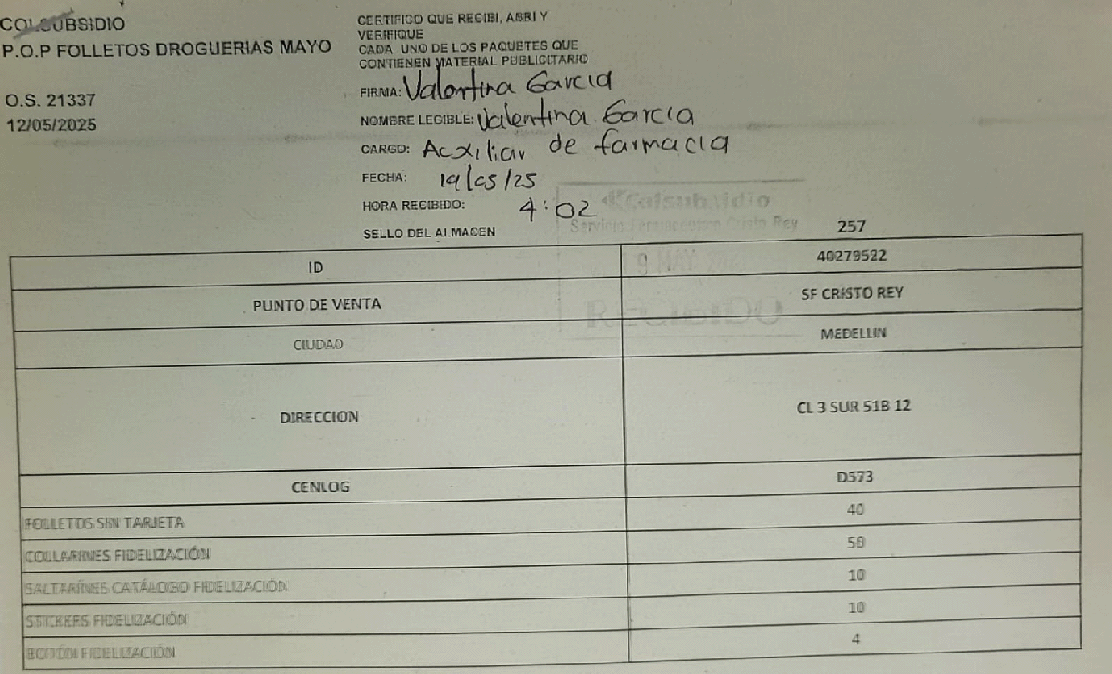 COLSUBSIDIO
P.O.P FOLLETOS DROGUERIAS MAYO
O.S. 21337
12/05/2025
CERTIFICO QUE RECIBI, ABRI Y
VERIFIQUE
CADA UNO DE LOS PAQUETES QUE
CONTIENEN MATERIAL PUBLICITARIO
FIRMA: Valentina Garcia
NOMBRE LEGIBLE: Valentina Garcia
CARGO: Acxiliar de farmacia
FECHA: 19/05/25
HORA RECIBIDO: 4:02
SELLO DEL ALMACEN
Colsubsidio
Servicio Farmaceutico Cristo Rey
19 MAY
RECIBIDO
257
ID 40279522
PUNTO DE VENTA SF CRISTO REY
CIUDAD MEDELLIN
DIRECCION CL 3 SUR 51B 12
CENLOG D573
FOLLETOS SIN TARJETA 40
COLLARINES FIDELIZACIÓN 50
SALTARINES CATÁLOGO FIDELIZACIÓN 10
STICKERS FIDELIZACIÓN 10
BOTÓN FIDELIZACIÓN 4